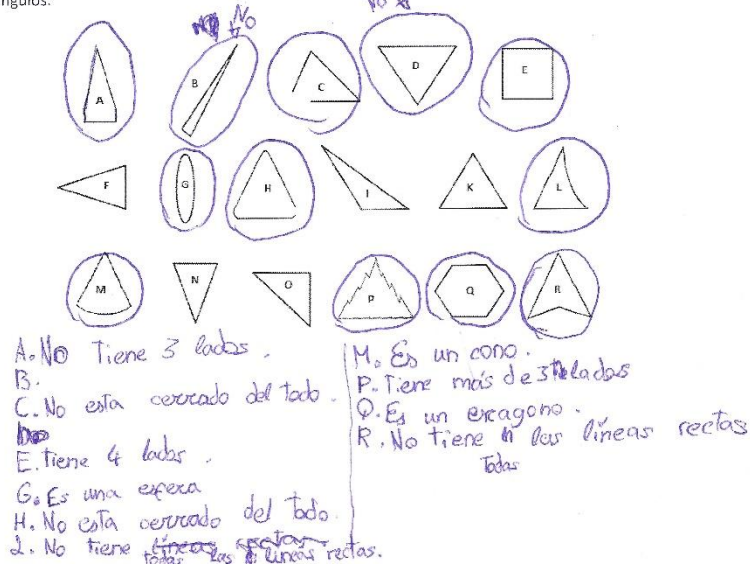 ngulos.
No
No
A
B
C
D
E
F
G
H
I
K
L
M
N
O
P
Q
R
A. No Tiene 3 lados.
B.
C. No esta cerrado del todo.
E. Tiene 4 lados.
G. Es una esfera
H. No esta cerrado del todo.
L. No tiene líneas rectas
todas las líneas rectas.
M. Es un cono.
P. Tiene más de 3 lados
Q. Es un exagono.
R. No tiene las líneas rectas
Todas